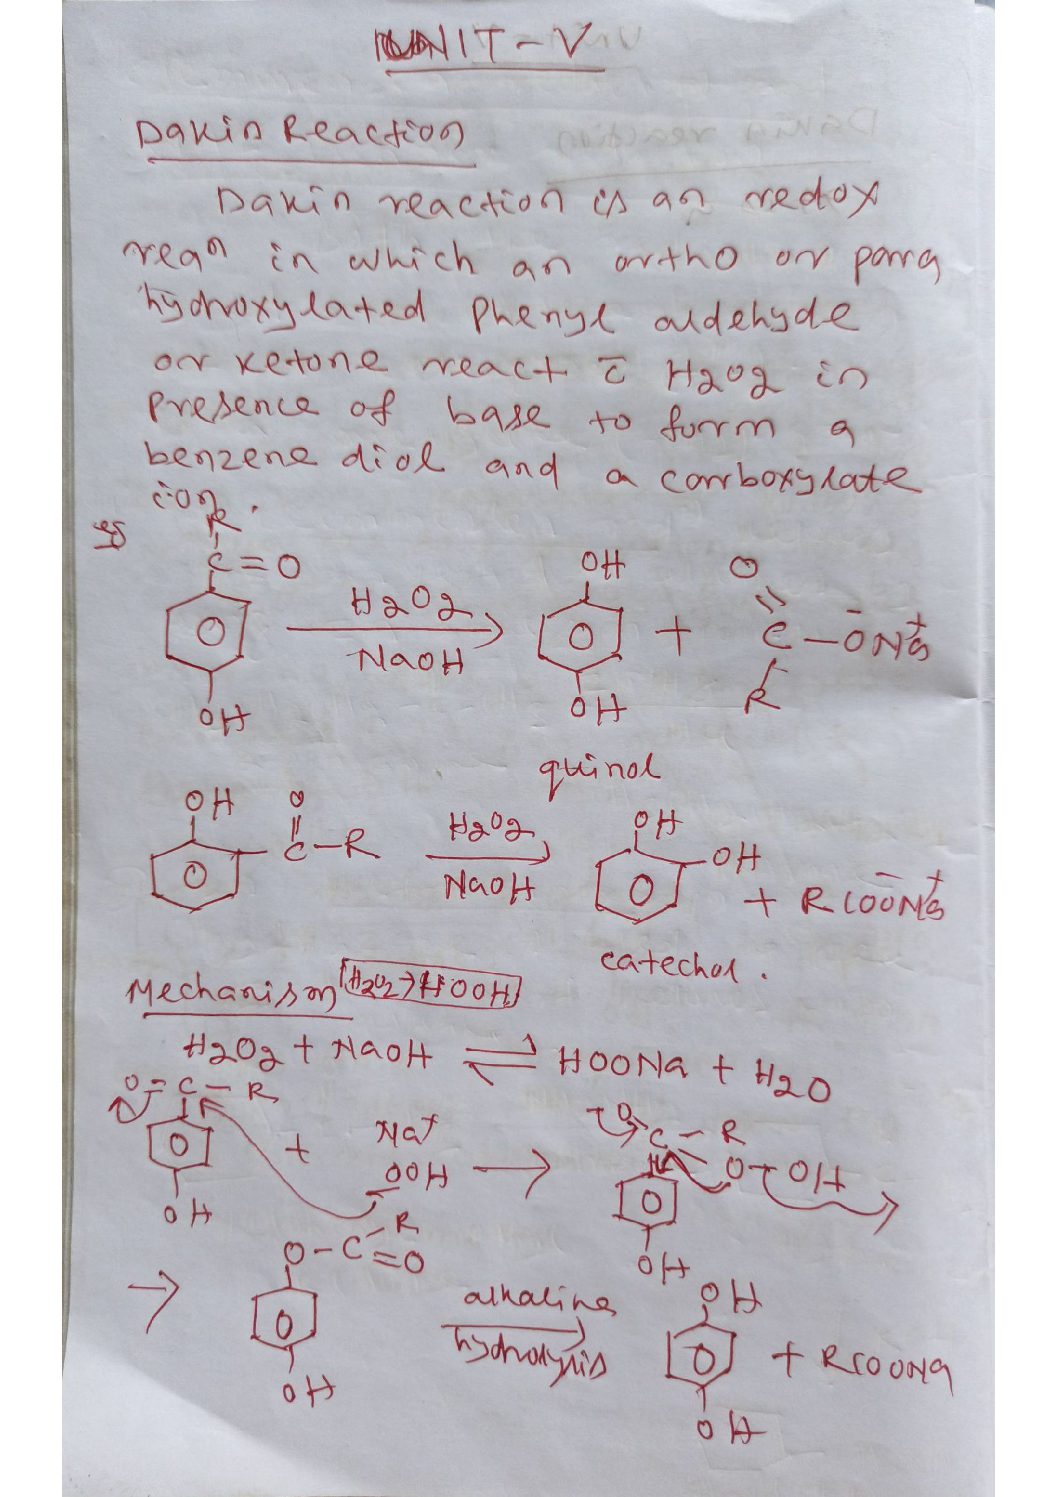 UNIT-V
Dakin Reaction
Dakin reaction is an redox
reaⁿ in which an ortho or para
hydroxylated phenyl aldehyde
or ketone react c̄ H2O2 in
presence of base to form a
benzene diol and a carboxylate
ion.
eg
R
C=O
OH
H2O2
NaOH
OH
OH
+
O
C-O⁻Na⁺
R
quinol
OH
O
C-R
H2O2
NaOH
OH
OH
+ RCOO⁻Na⁺
catechol.
Mechanism
H2O2→HOOH
H2O2 + NaOH ⇌ HOONa + H2O
O=C-R
OH
+
Na⁺
OOH
→
O
C-R
O-OH
OH
→
O-C=O
R
OH
alkaline
hydrolysis
OH
OH
+ RCOONa